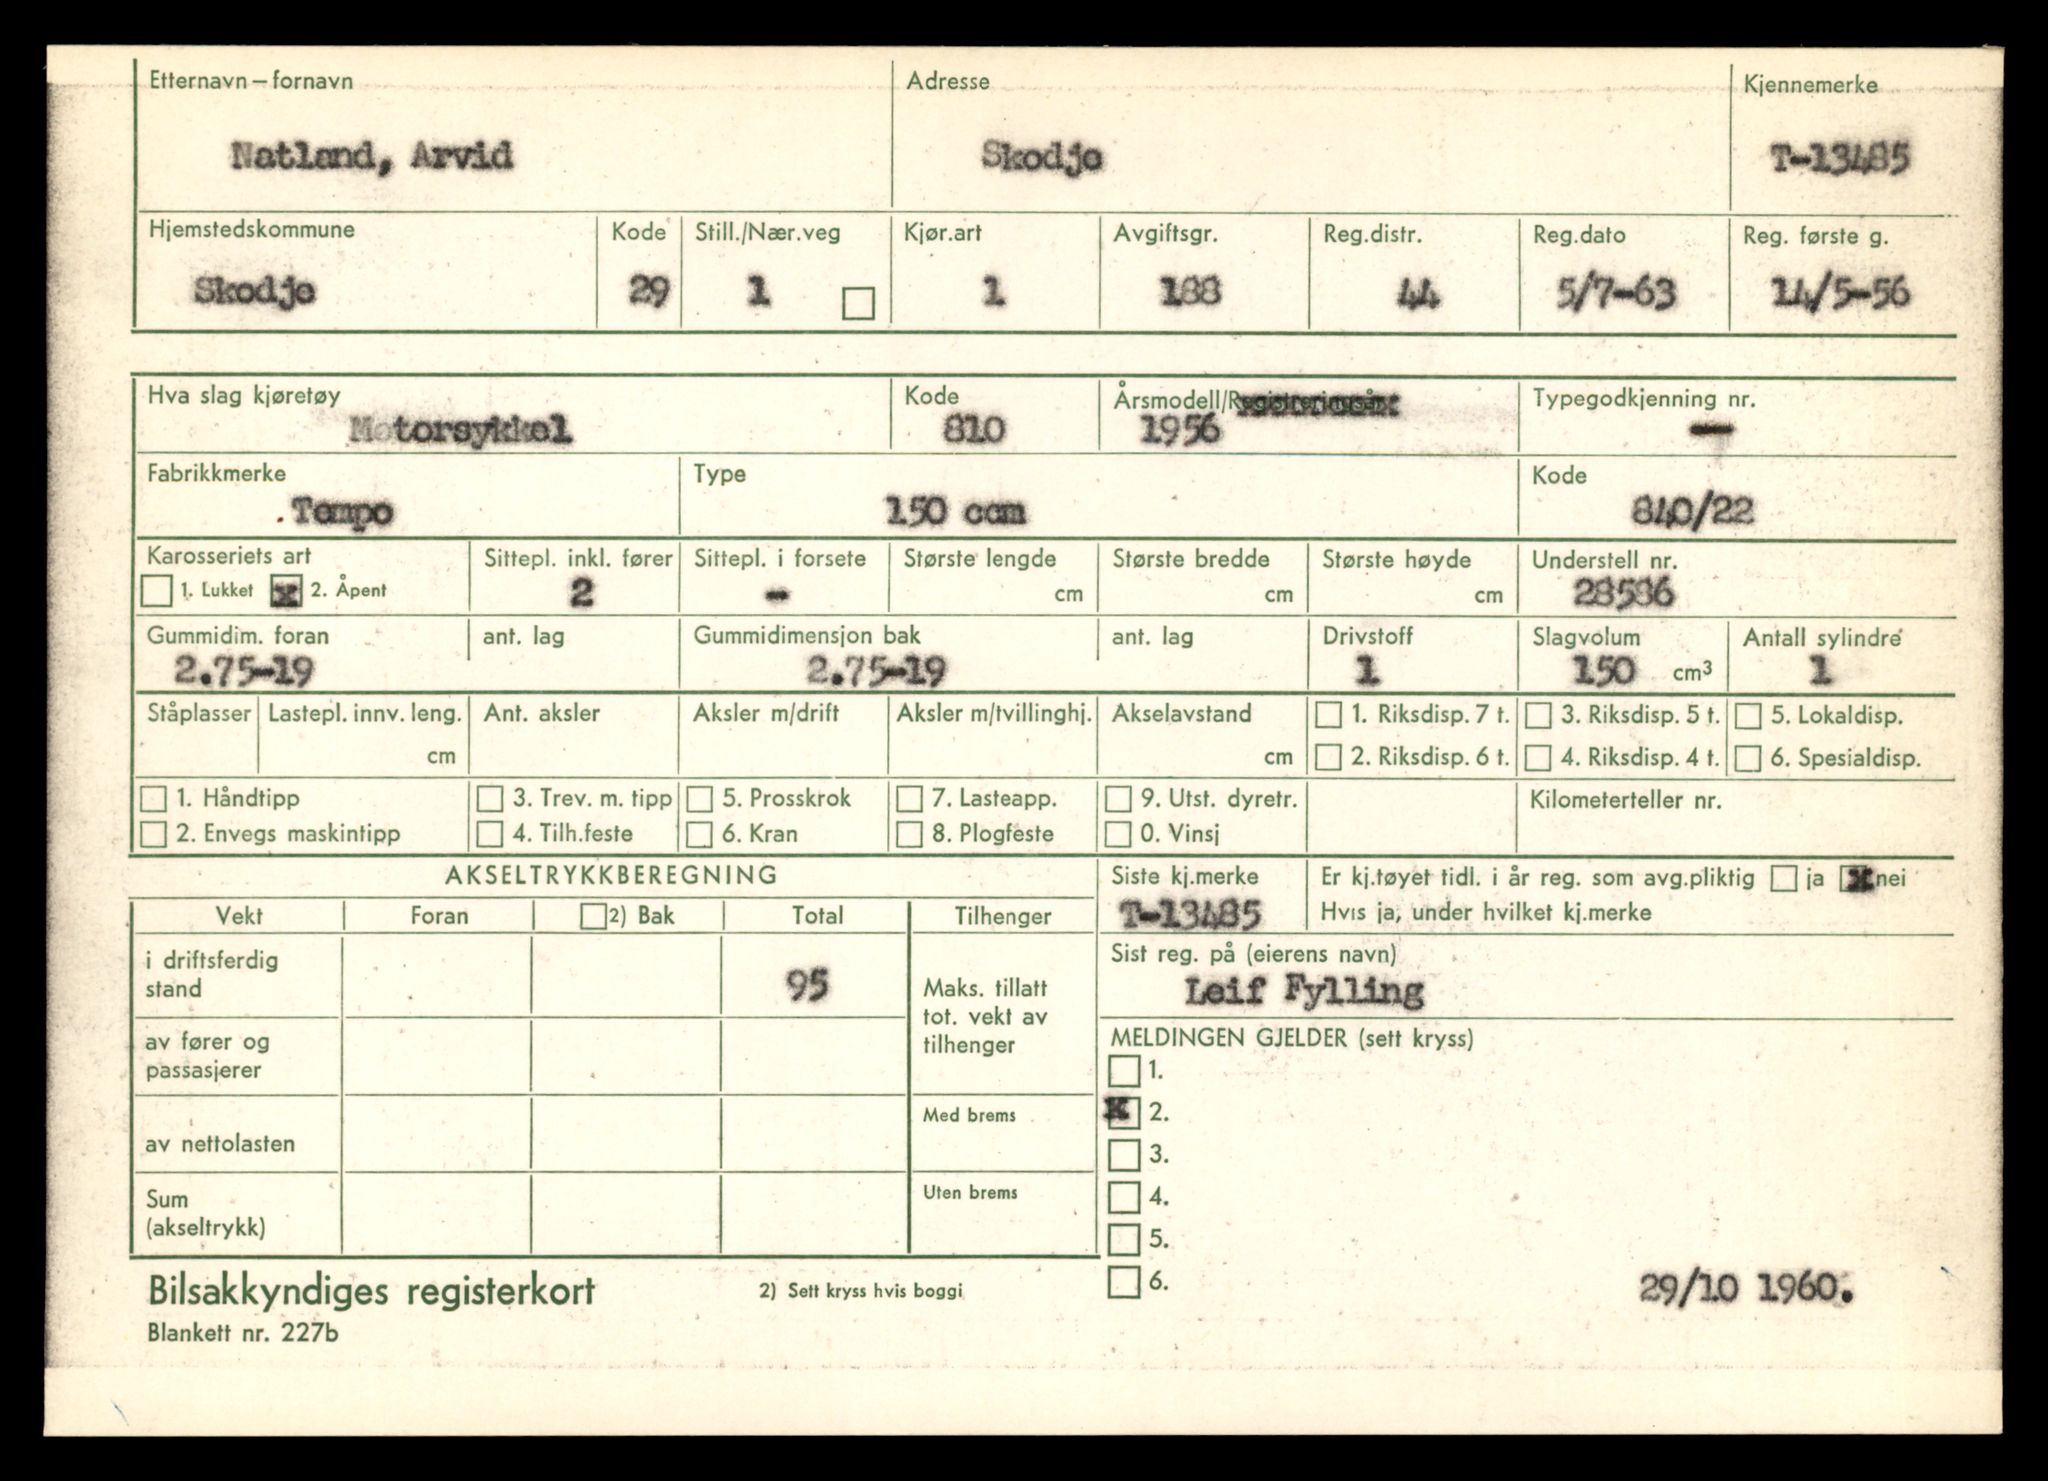 Etternavn – fornavn Adresse Kjennemerke
Natland, Arvid Skodje T-13485
Hjemstedskommune Kode Still./Nær.veg Kjør.art Avgiftsgr. Reg.distr. Reg.dato Reg. første g.
Skodje 29 1 1 188 44 5/7-63 14/5-56
Hva slag kjøretøy Kode Årsmodell/Registreringsår Typegodkjenning nr.
Motorsykkel 810 1956 —
Fabrikkmerke Type Kode
Tempo 150 ccm 840/22
Karosseriets art Sittepl. inkl. fører Sittepl. i forsete Største lengde Største bredde Største høyde Understell nr.
1. Lukket x 2. Åpent 2 - cm cm cm 28586
Gummidim. foran ant. lag Gummidimensjon bak ant. lag Drivstoff Slagvolum Antall sylindre
2.75-19 2.75-19 1 150 cm³ 1
Ståplasser Lastepl. innv. leng. Ant. aksler Aksler m/drift Aksler m/tvillinghj. Akselavstand 1. Riksdisp. 7 t. 3. Riksdisp. 5 t. 5. Lokaldisp.
cm cm 2. Riksdisp. 6 t. 4. Riksdisp. 4 t. 6. Spesialdisp.
1. Håndtipp 3. Trev. m. tipp 5. Prosskrok 7. Lasteapp. 9. Utst. dyretr. Kilometerteller nr.
2. Envegs maskintipp 4. Tilh.feste 6. Kran 8. Plogfeste 0. Vinsj
AKSELTRYKKBEREGNING Siste kj.merke Er kj.tøyet tidl. i år reg. som avg.pliktig ja x nei
Vekt Foran 2) Bak Total Tilhenger T-13485 Hvis ja, under hvilket kj.merke
i driftsferdig stand 95 Maks. tillatt tot. vekt av tilhenger
Sist reg. på (eierens navn)
Leif Fylling
av fører og passasjerer
MELDINGEN GJELDER (sett kryss)
1.
av nettolasten Med brems x 2.
3.
Sum (akseltrykk) Uten brems 4.
5.
6.
Bilsakkyndiges registerkort 2) Sett kryss hvis boggi 29/10 1960.
Blankett nr. 227b